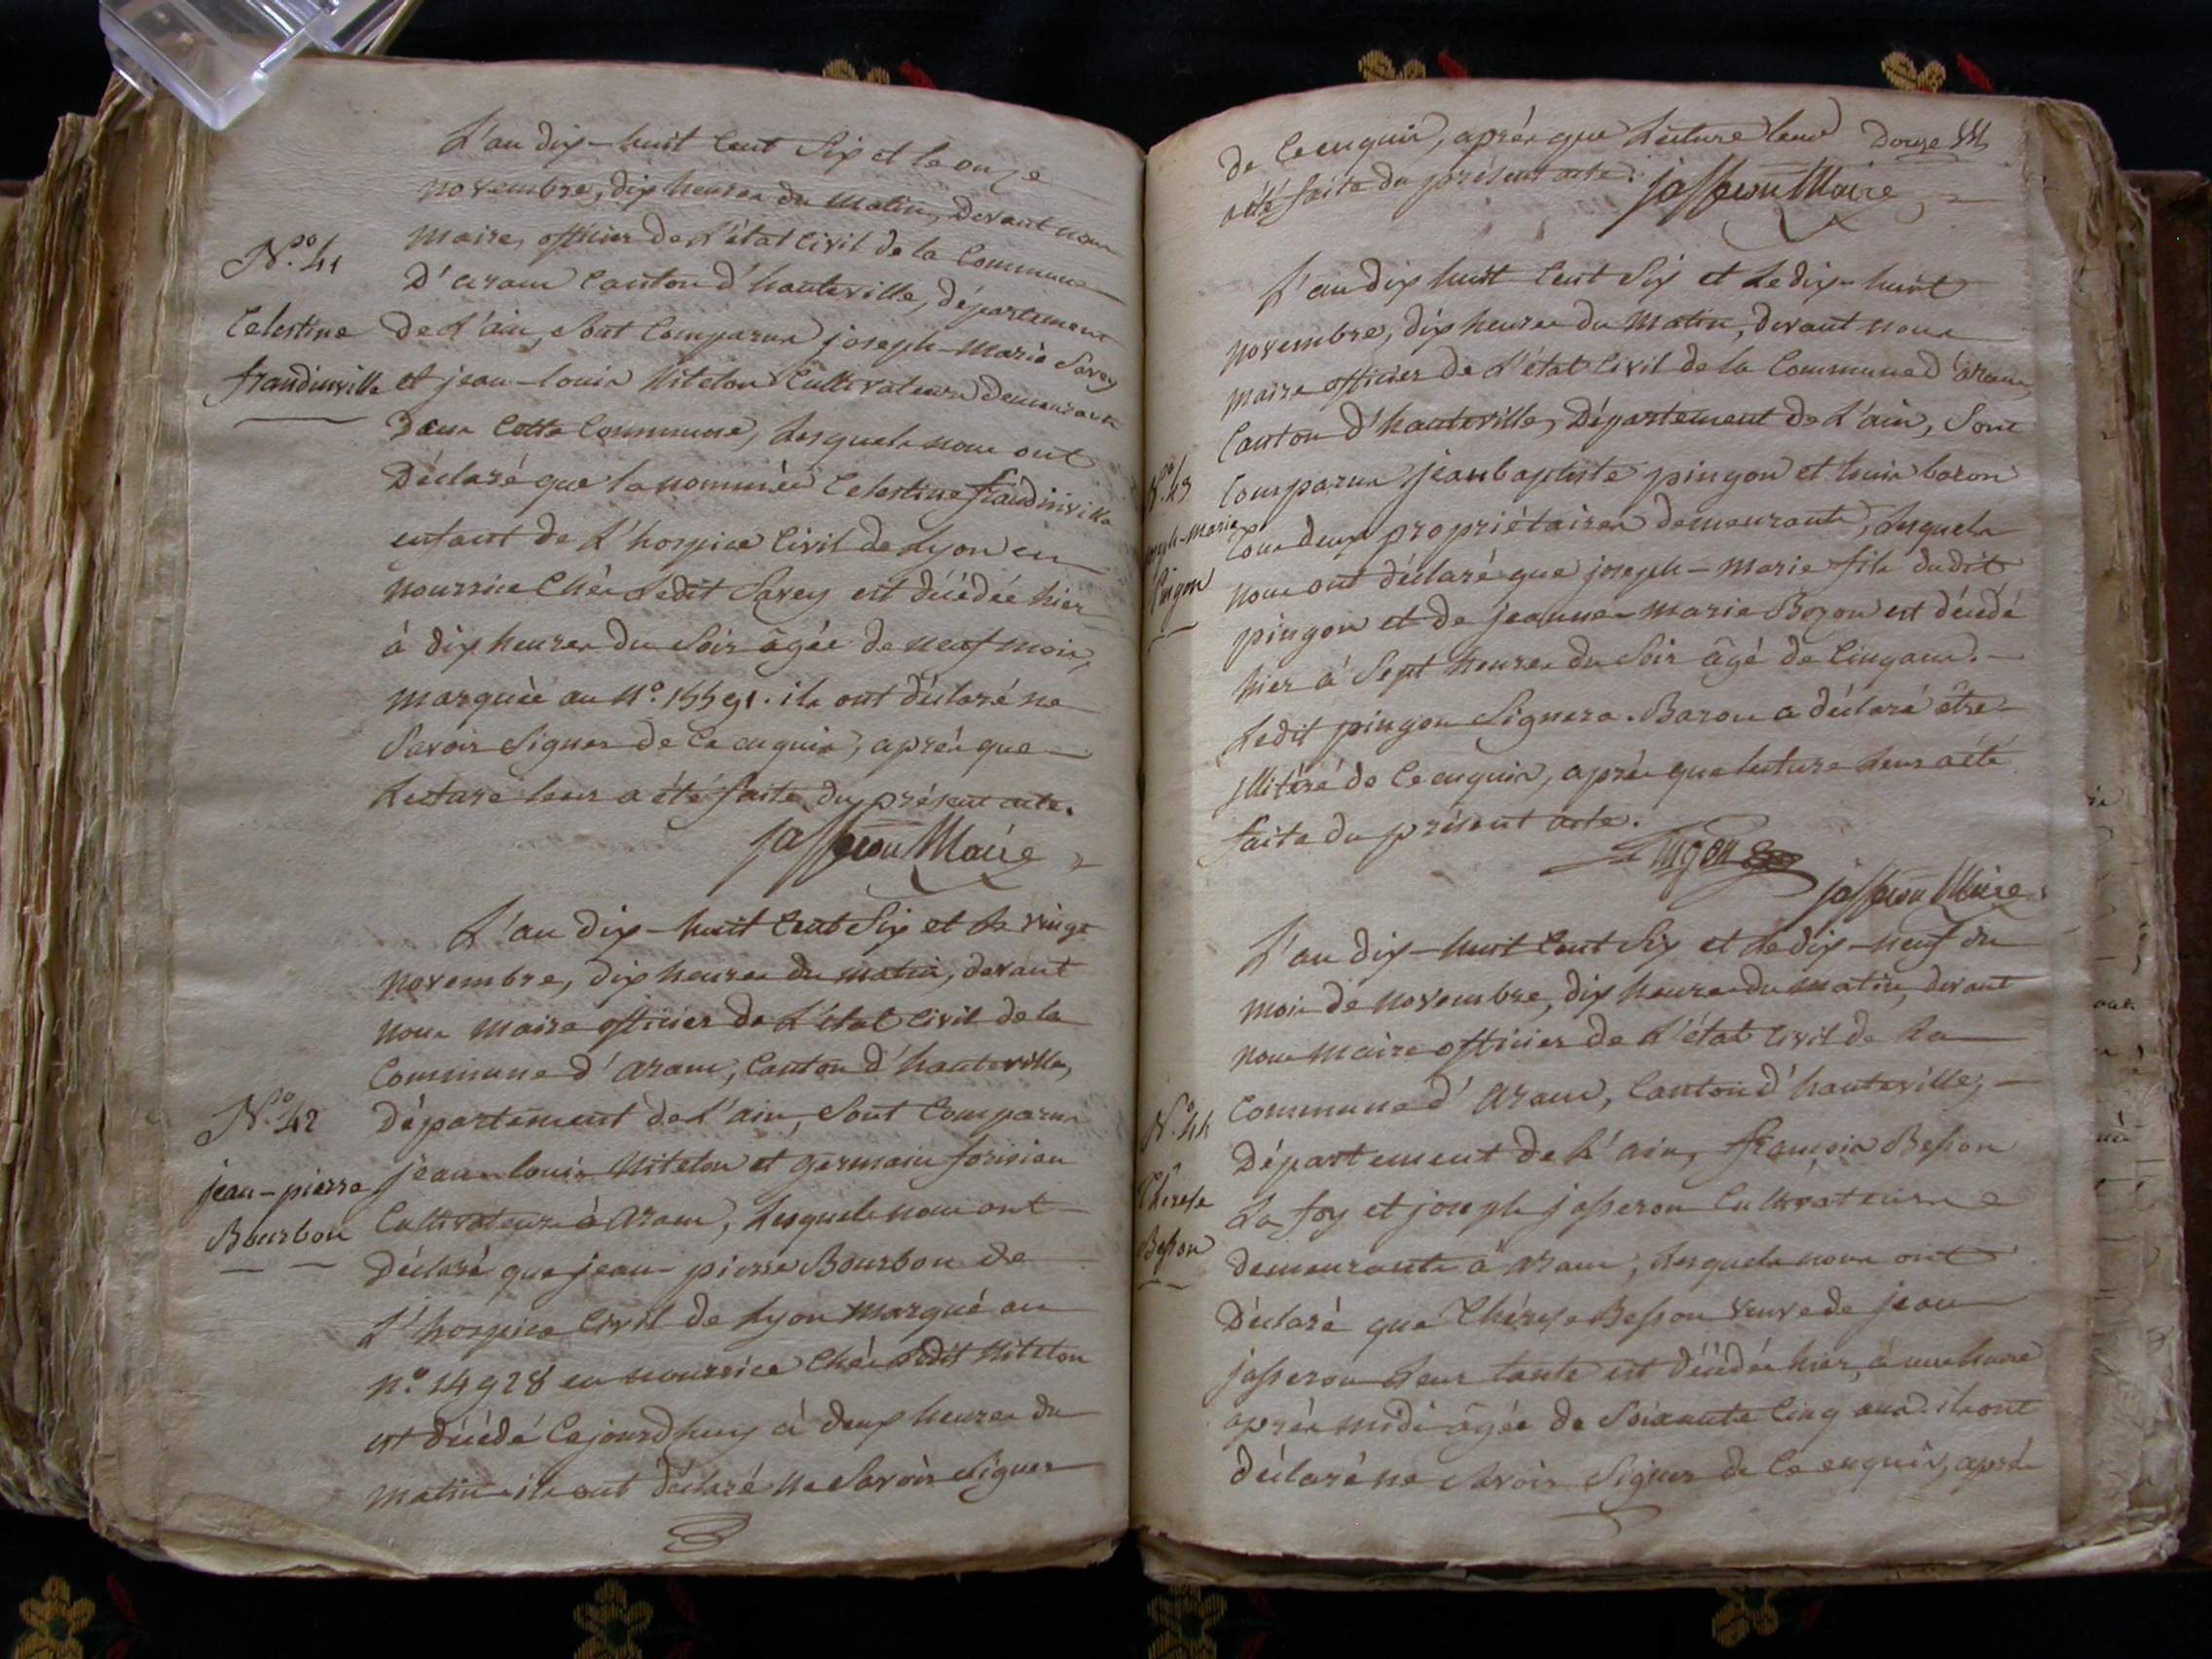 L'an dix-huit cent Six et le onze
novembre, dix heures du matin, devant nous
maire, officier de l'état civil de la commune
N.o 41
d'aranc canton d'hauteville, département
Celestine
de L'ain, sont comparus joseph-marie Savey
frandinville
et jean-louis Niteton cultivateurs demeurants
dans cette commune, lesquels nous ont
Déclaré que la nommée Celestine frandinville
enfant de L'hospice civil de Lyon en
nourrice chés Ledit Savey est décédée hier
à dix heures du soir âgée de neuf mois,
marquée au N.o 15591. ils ont déclaré ne
Savoir signer de ce enquis, après que
Lecture leur a été faite du présent acte.
jasseron Maire
L'an dix-huit cent Six et le vingt
novembre, dix heures du matin, devant
nous maire officier de L'état civil de la
commune d'aranc, canton d'hauteville,
N.o 42
Département de L'ain, sont comparus
jean-pierre
jean-louis Niteton et germain
Bourbon
cultivateurs à aranc, lesquels nous ont
Déclaré que jean-pierre Bourbon de
L'hospice civil de Lyon marqué au
n.o 14928 en nourrice chés Ledit Niteton
est décédé cejourd'huy à deux heures du
matin. ils ont déclaré ne savoir signer
de ce enquis, après que Lecture leur
Douze
a été faite du présent acte. jasseron Maire
L'an dix huit cent Six et le dix-huit
novembre, dix heures du matin, devant nous
maire officier de L'état civil de la commune d'aranc
canton d'hauteville, Département de L'ain, sont
N.o 43
comparus jean baptiste pingon et louis baron
joseph-marie
tous deux propriétaires demeurants, lesquels
Pingon
nous ont déclaré que joseph-marie fils dudit
pingon et de jeanne-marie Bozon est décédé
hier à sept heures du soir âgé de cinq ans.
Ledit pingon signera. Baron a déclaré être
illitéré de ce enquis, après que lecture leur a été
faite du présent acte.
Pingon
jasseron Maire
L'an dix-huit cent Six et le dix-neuf du
mois de novembre, dix heures du matin, devant
nous maire officier de L'état civil de La
N.o 44
Commune d'aranc, canton d'hauteville,
Département de L'ain, françois Besson
Therese
La foy et joseph jasseron cultivateurs
Besson
demeurants à aranc, lesquels nous ont
Déclaré que Thérese Besson veuve de jean
jasseron leur tante est décédée hier, à une heure
après midi âgée de soixante cinq ans. ils ont
déclaré ne savoir signer de ce enquis, après